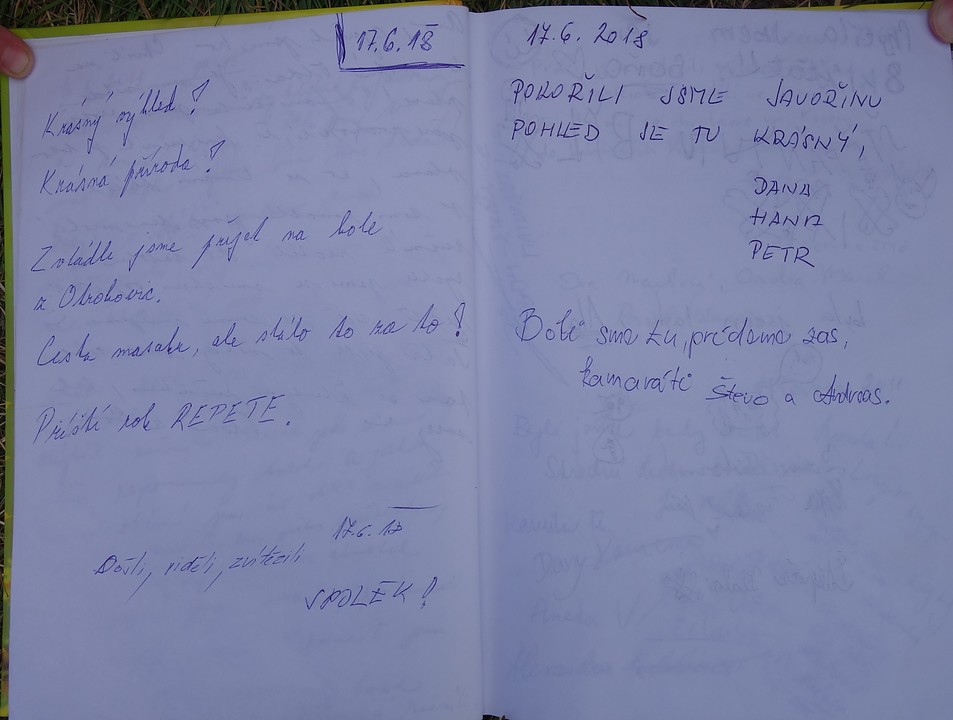 17.6.18
Krásný výhled!
Krásná příroda!
Zvládli jsme přijet na kole
z Otrokovic.
Cesta masakr, ale stálo to za to!
Příští rok REPETE.
17.6.18
Došli, viděli, zvítězili
SPOLEK!
17.6. 2018
POKOŘILI JSME JAVOŘINU
POHLED JE TU KRÁSNÝ,
DANA
HANA
PETR
Boli sme tu, prídeme zas,
kamaráti Števo a Andreas.